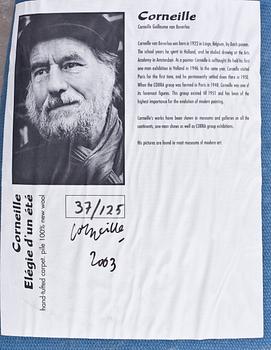 Corneille
Corneille Guillaume van Beverloo
Corneille Guillaume van Beverloo was born in 1922 in Liège, Belgium, by Dutch parents.
The school years he spent in Holland, and he studied drawing at the Arts
Academy in Amsterdam. As a painter Corneille is selftaught. He held his first
one-man exhibition in Holland in 1946. In the same year, Corneille visited
Paris for the first time, and he permanently settled down there in 1950.
When the COBRA group was formed in Paris in 1948, Corneille was one of
its foremost figures. This group existed till 1951 and has been of the
highest importance for the evolution of modern painting.
Corneille's works have been shown in museums and galleries on all the
continents, one-man shows as well as COBRA group exhibitions.
His pictures are found in most museums of modern art.
Corneille
Elégie d'un été
hand-tufted carpet. pile 100% new wool
37/125
Corneille
2003